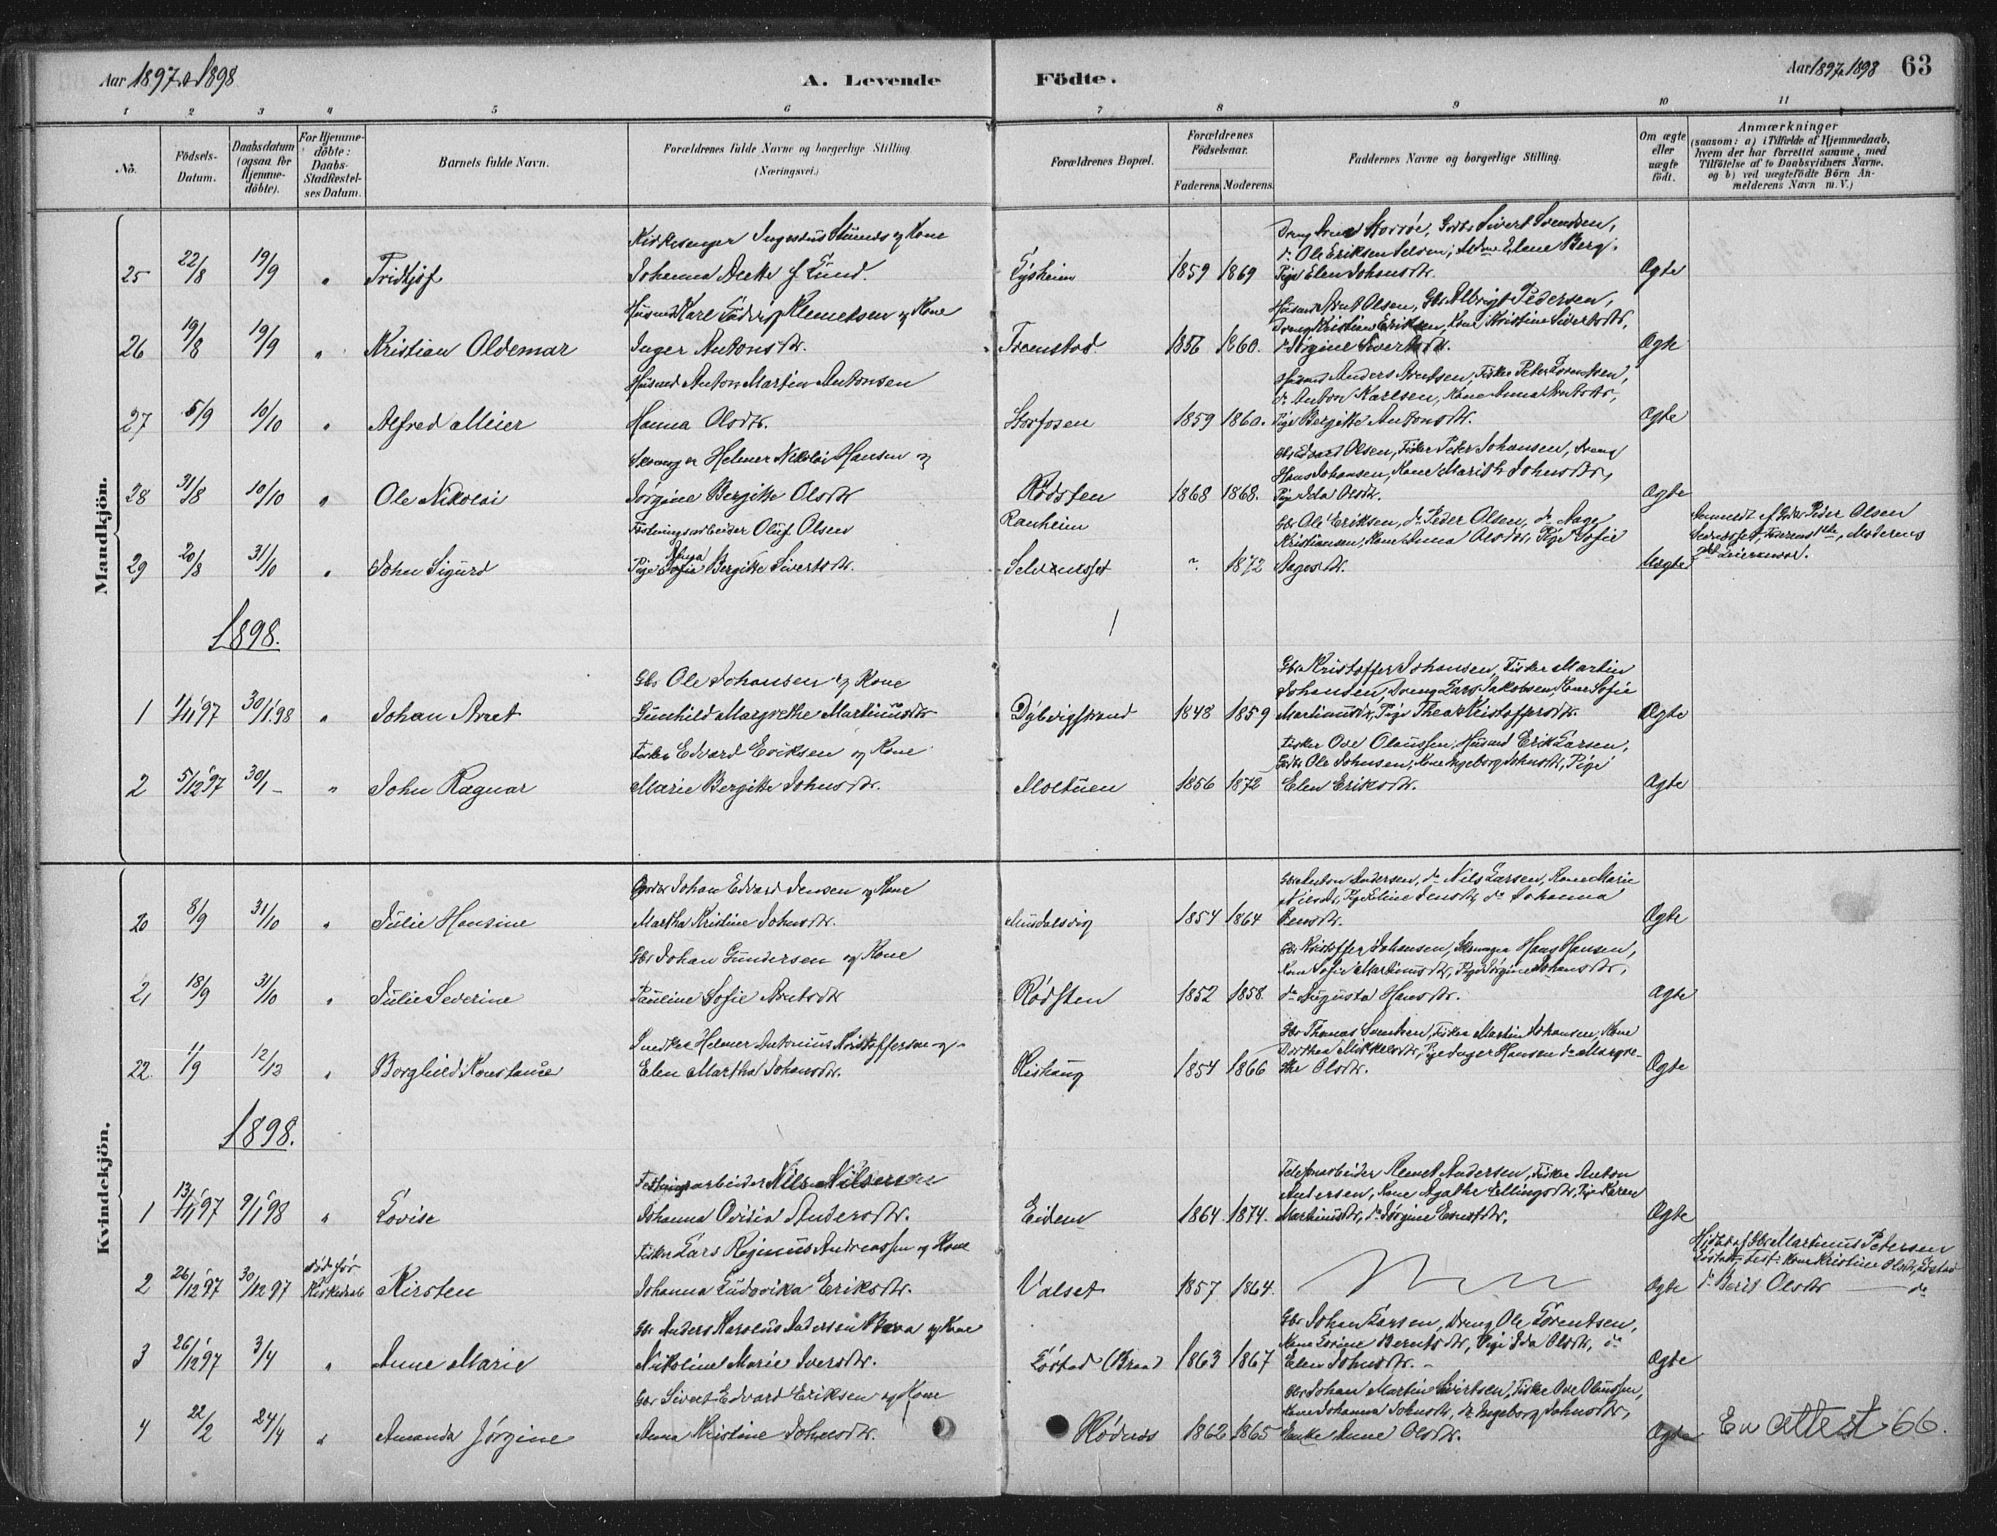 Aar 1897 & 1898
A. Levende
Födte.
Aar 1897 & 1898
63
1 2 3 4 5 6 7 8 9 10 11
No.
Födsels-
Datum.
Daabsdatum
(ogsaa for
Hjemme-
döbte).
For Hjemme-
döbte:
Daabs-
Stadfæstel-
ses Datum.
Barnets fulde Navn.
Forældrenes fulde Navne og borgerlige Stilling
(Næringsvei.)
Forældrenes Bopæl.
Forældrenes
Födselsaar.
Faderens Moderens
Faddernes Navne og borgerlige Stilling.
Om ægte
eller
uægte
födt.
Anmærkninger
(saasom: a) i Tilfælde af Hjemmedaab,
hvem der har forrettet samme, med
Tilföielse af to Daabsvidners Navne.
og b) ved uægtefödte Börn An-
melderens Navn m. V.)
Mandkjön.
25 22/8 19/9 " Fridtjof
Kirkesanger
og Kone
Johanna
1859 1869
Sivert Svendsen,
Ole Eriksen Selven, Elene Berg,
Pige Elen Johansdtr.
Ægte
26 19/8 19/9 " Kristian Oldemar
Husmd Karl Ludvig Klemetsen og Kone
Inger Antonsdtr.
1856 1860.
Husmd Arnt Olsen, Gbr Albrigt Pedersen,
Dreng Kristian Eriksen, Kone Kristine Sivertsdtr,
do Jørgine Sivertsdtr.
Ægte
27 5/9 10/10 " Alfred Meier
Husmd Anton Martin Antonsen
Hanna Olsdtr.
Storfosen
1859 1860.
Husmd Anders Arntsen, Fisker Peter Lorentsen,
do Anton Karlsen, Kone Anna Arntsdtr,
Pige Bergitte Antonsdtr.
Ægte
28 31/8 10/10 " Ole Nikolai
Skomager Helmer Nikolai Hansen og
Jørgine Bergitte Olsdtr
Rødsten
1868 1868.
Gbr Edvard Olsen, Fisker Peter Johansen, Dreng
Hans Johansen, Kone Marith Johnsdtr,
Pige Ida Olsdtr.
Ægte
29 20/8 31/10 " John Sigurd
Fæstningsarbeider Oluf Olsen
Pige Sofie Bergitte Sivertsdtr.
Ranheim
? 1872
Gbr Ole Eriksen, do Peder Olsen, do Aage
Kristiansen, Kone Anna Olsdtr, Pige Sofie
Aagesdtr.
Uægte
Anmeldt af Gbr Peder Olsen
Faderens 1ste, Moderens
2det Leiermaal.
1898.
1 1/11 97 30/1 98 " Johan Arnt
Gbr Ole Johansen og Kone
Gunhild Margrethe Martinusdtr
Dybvigstrand
1848 1859
Gbr Kristoffer Johansen, Fisker Martin
Johansen, Dreng Lars Jakobsen, Kone Sofie
Martinusdtr, Pige Thea Kristoffersdtr.
Ægte
2 5/12 97 30/1 – " John Ragnar
Fisker Edvard Eriksen og Kone
Marie Bergitte Johnsdtr.
Moltuen
1856 1872
Fisker Ove Olaussen, Husmd Erik Larsen,
Gbr Ole Johnsen, Kone Ingeborg Johnsdtr, Pige
Elen Eriksdtr.
Ægte
Kvindekjön.
20 8/9 31/10 " Julie Hansine
Johan Edvard Jensen og Kone
Martha Kristine Johnsdtr.
1854 1864
Gbr Anton Andersen, do Nils Larsen, Kone Marie
Nilsdtr, Pige Eline Jensdtr, do Johanna
Jensdtr.
Ægte
21 18/9 31/10 " Julie Severine
Gbr Johan Gundersen og Kone
Pauline Sofie Arntsdtr
Rødsten
1852 1858.
Gbr Kristoffer Johansen, Skomager Hans Hansen,
Kone Sofie Martinusdtr, Pige Jørgine Johansdtr,
do Augusta Hansdtr.
Ægte
22 11/9 12/13 " Borghild Konstance
Snedker Helmer Antonius Kristoffersen og
Elen Martha Johansdtr.
Rishaug
1854 1866
Gbr Thomas Svendsen, Fisker Martin Johansen, Kone
Dorthea Mikkelsdtr, Pige Inger Hansen do Margre-
the Olsdtr.
Ægte
1898.
1 13/11 97 9/1 98 " Lovise
Fæstningsarbeider Nils Nilsersen
Johanna Ovidia Andersdtr.
Eidem
1864 1874.
Telefonarbeider Klemet Andersen, Fisker Anton
Andersen, Kone Agathe Ellingsdtr, Pige Karen
Martinusdtr, do Jørgine Ernstdtr,
Ægte
2 26/12 97 30/12 97 død før
Kirkedaab
Kirsten
Fisker Lars Reginus Andreassen og Kone
Johanna Ludovika Eriksdtr.
Valset
1857 1864.
Ægte
Hjdbt af Gbr Martinus Petersen
Løstad, Test: Kone Kristine Olsdtr, Løstad
do Berit Olsdtr — do
3 26/12 97 3/4 " Anne Marie
Gbr Anders Karolus Andersen og Kone
Nikoline Marie Iversdtr.
Løstad (Braa)
1863 1867
Gbr Johan Larsen, Dreng Ole Lorentsen,
Kone Lorine Berntsdtr, Pige Ida Olsdtr, do
Elen Johnsdtr. –
Ægte
4 22/2 24/4 " Amanda Jørgine
Gbr Sivert Edvard Eriksen og Kone
Anna Kristine Johnsdtr.
Rødnes
1862 1865
Gbr Johan Martin Sivertsen, Fisker Ove Olaussen,
Kone Johanna Johnsdtr, do Ingeborg Johnsdtr,
Enke Anne Olsdtr.
Ægte
En attest 66.